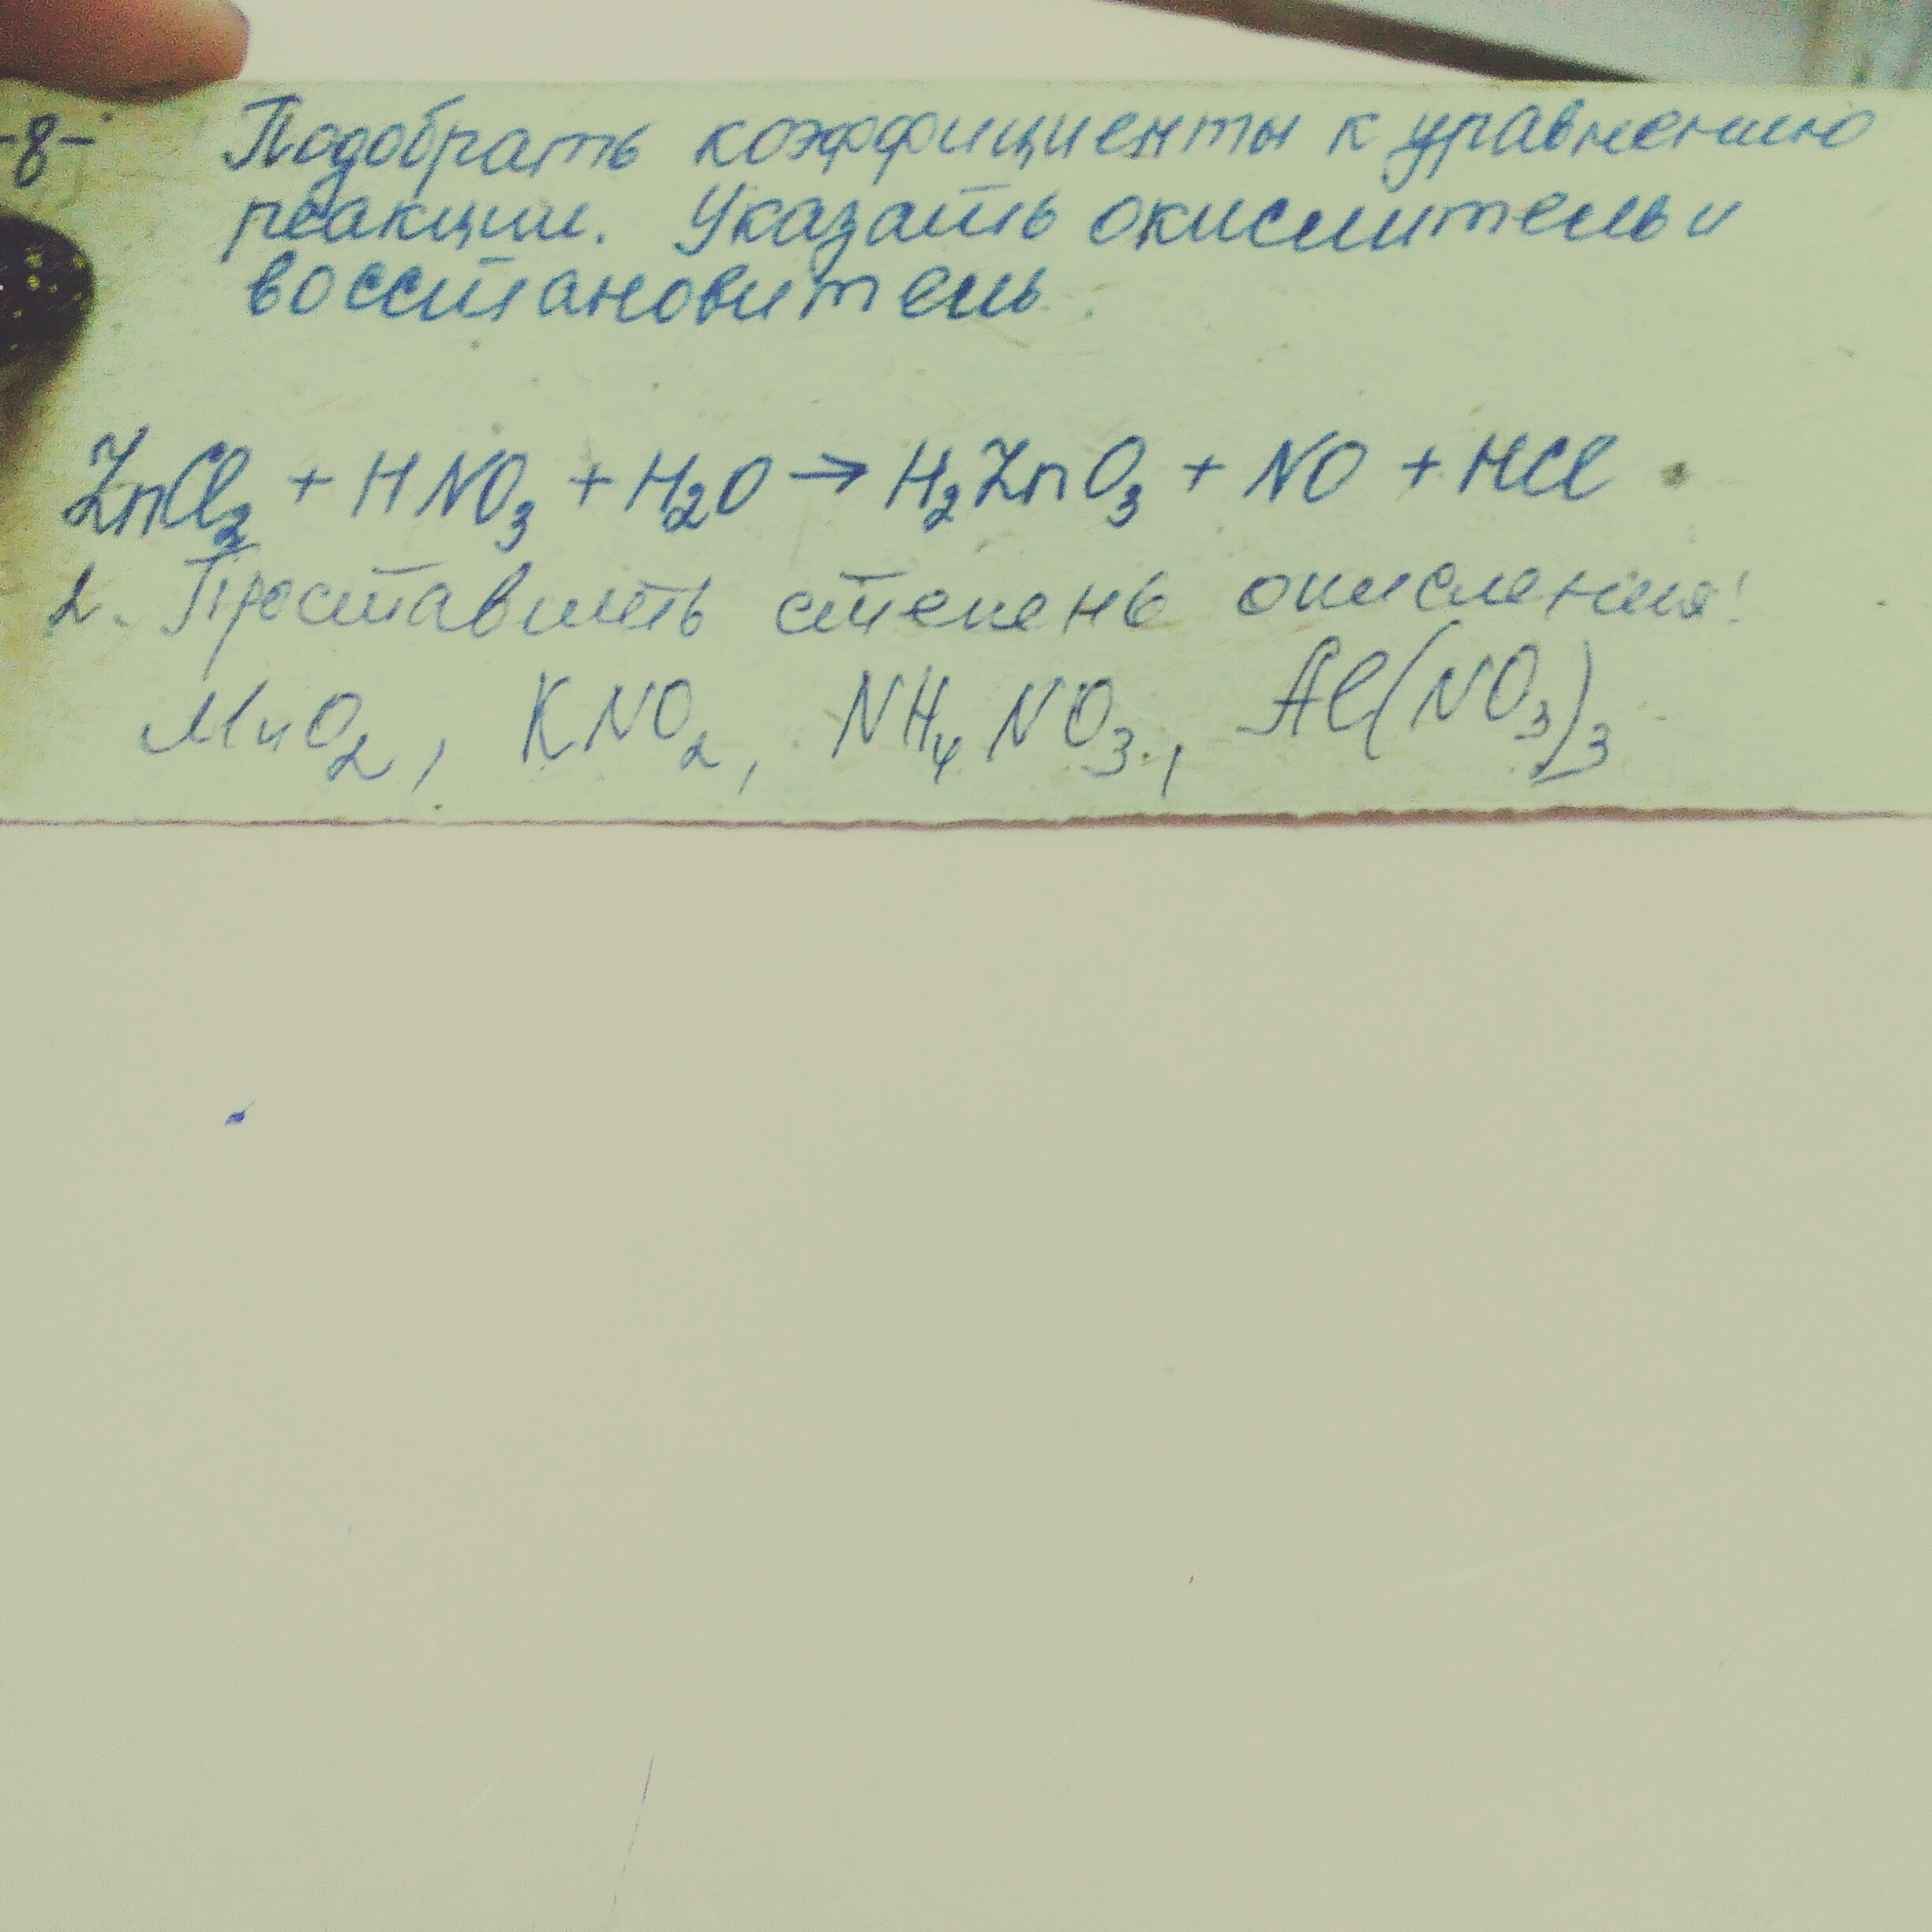 -8- Подобрать коэффициенты к уравнению
реакции. Указать окислитель и
восстановитель.
ZnCl₂ + HNO₃ + H₂O → H₂ZnO₃ + NO + HCl
2. Проставить степень окисления!
MnO₂, KNO₂, NH₄NO₃, Al(NO₃)₃